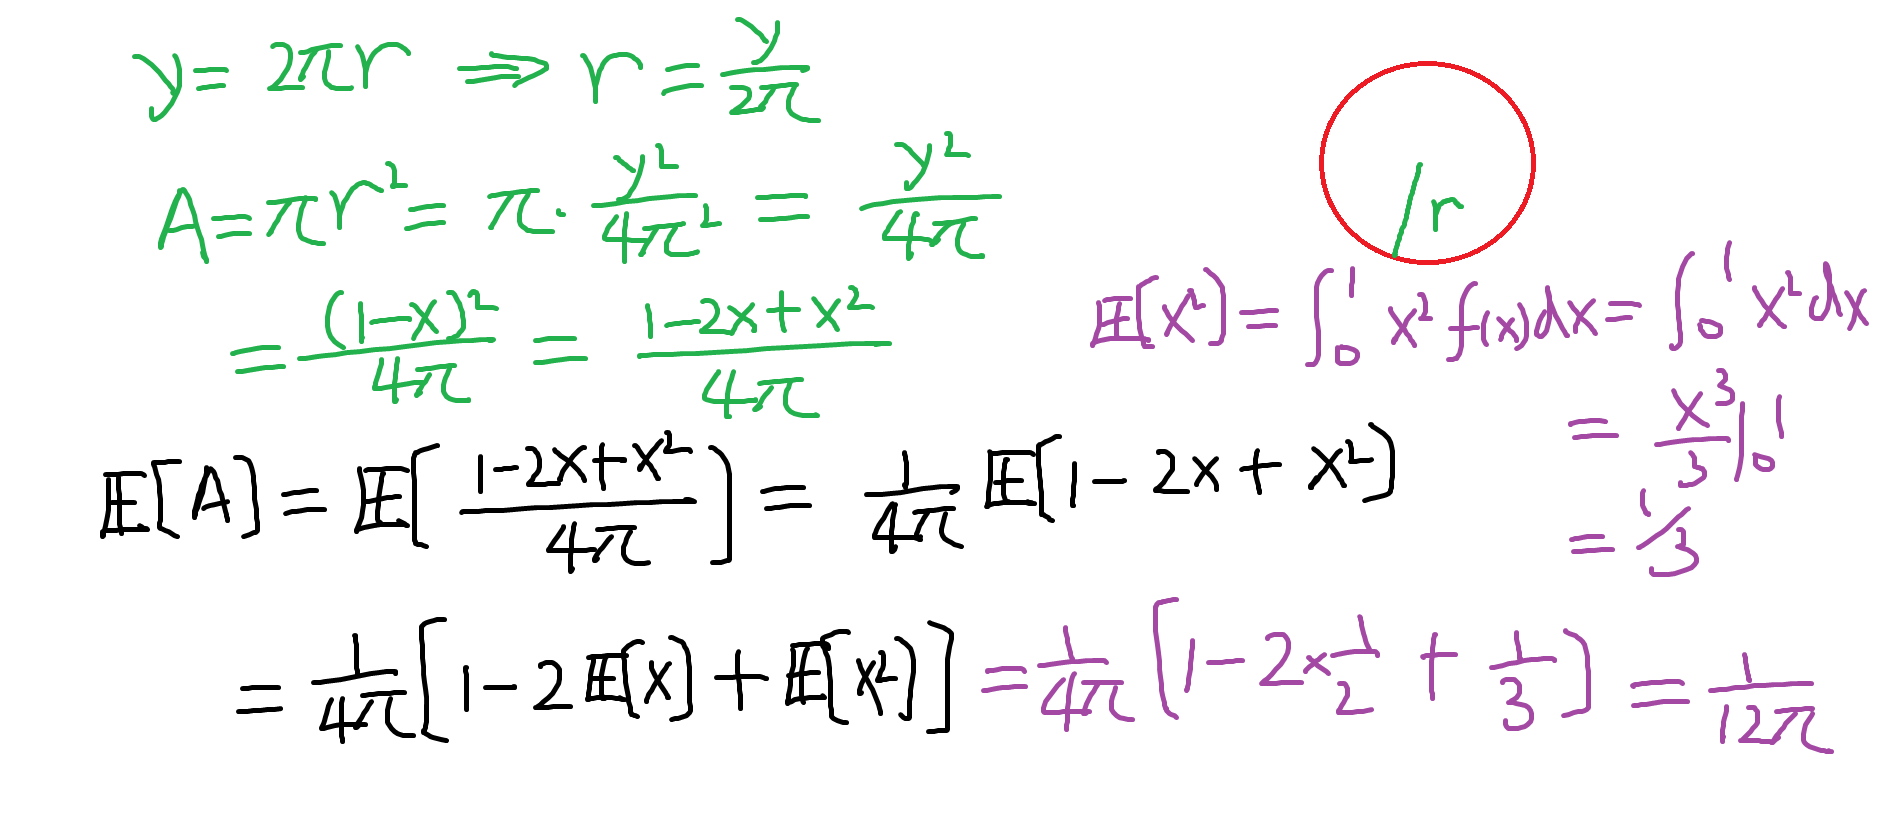 y = 2πr ⟹ r = y/2π
A = πr² = π · y²/4π² = y²/4π
= (1-x)²/4π = 1-2x+x²/4π
r
𝔼[x²] = ∫₀¹ x² f(x) dx = ∫₀¹ x² dx
= x³/3 |₀¹
= 1/3
𝔼[A] = 𝔼[1-2x+x²/4π] = 1/4π 𝔼[1 - 2x + x²]
= 1/4π [1 - 2𝔼[x] + 𝔼[x²]] = 1/4π [1 - 2×1/2 + 1/3] = 1/12π